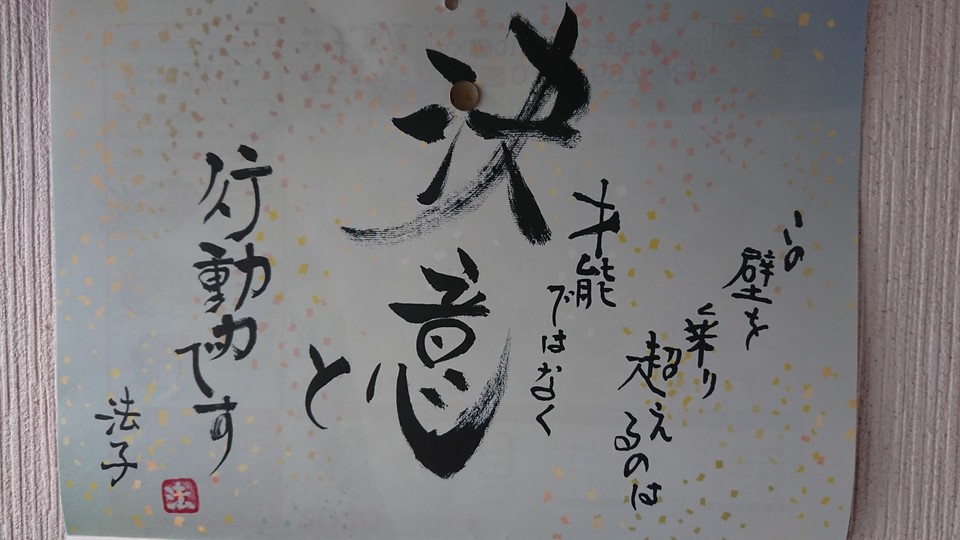 この壁を
乗り
超えるのは
才能
ではなく
決意
と
行動力です
法子
法